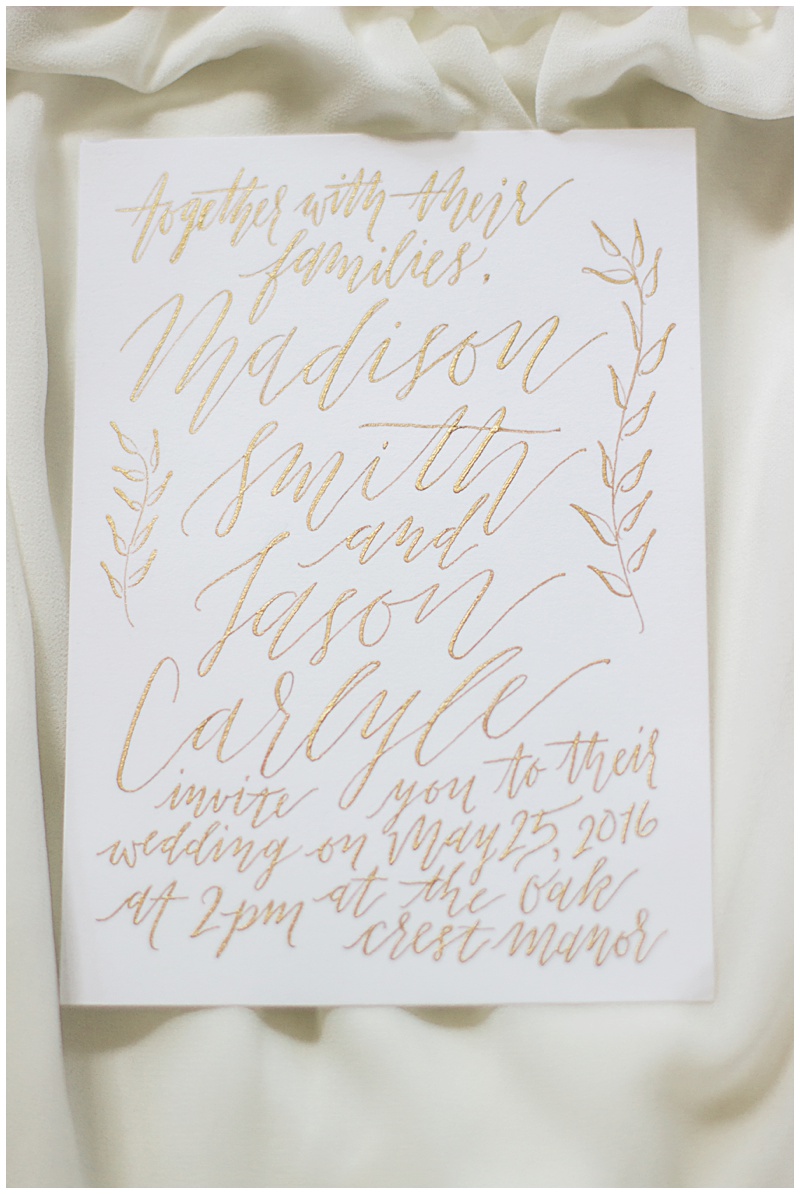 together with their
families.
Madison
Smith
and
Jason
Carlyle
invite you to their
wedding on May 25, 2016
at 2pm at the Oak
crest manor